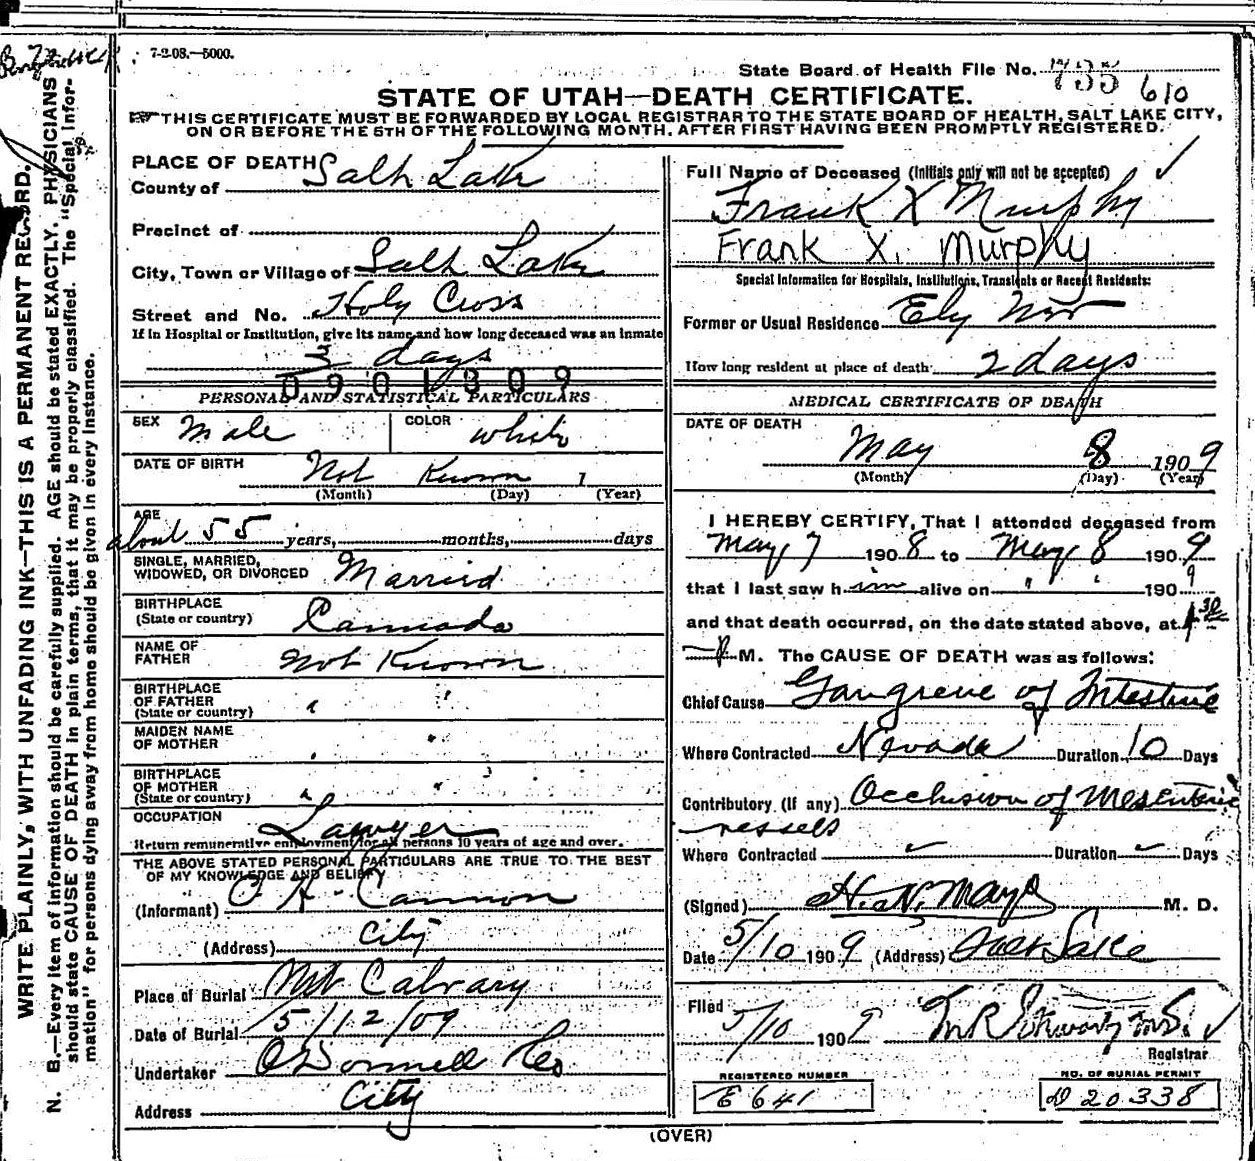 7-2-08.—5000.
State Board of Health File No. 735 610
STATE OF UTAH—DEATH CERTIFICATE.
THIS CERTIFICATE MUST BE FORWARDED BY LOCAL REGISTRAR TO THE STATE BOARD OF HEALTH, SALT LAKE CITY,
ON OR BEFORE THE 5TH OF THE FOLLOWING MONTH, AFTER FIRST HAVING BEEN PROMPTLY REGISTERED.
WRITE PLAINLY, WITH UNFADING INK—THIS IS A PERMANENT RECORD.
N. B.—Every item of information should be carefully supplied. AGE should be stated EXACTLY. PHYSICIANS
should state CAUSE OF DEATH in plain terms, that it may be properly classified. The "Special Infor-
mation" for persons dying away from home should be given in every instance.
PLACE OF DEATH
County of Salt Lake
Precinct of
City, Town or Village of Salt Lake
Street and No. Holy Cross
If in Hospital or Institution, give its name and how long deceased was an inmate
3 days
0901309
PERSONAL AND STATISTICAL PARTICULARS
SEX Male COLOR white
DATE OF BIRTH Not Known 1
(Month) (Day) (Year)
AGE
about 55 years, months, days
SINGLE, MARRIED,
WIDOWED, OR DIVORCED Married
BIRTHPLACE
(State or country) Cannada
NAME OF
FATHER Not Known
BIRTHPLACE
OF FATHER
(State or country) " "
MAIDEN NAME
OF MOTHER " "
BIRTHPLACE
OF MOTHER
(State or country) " "
OCCUPATION Lawyer
Return remunerative employment for all persons 10 years of age and over.
THE ABOVE STATED PERSONAL PARTICULARS ARE TRUE TO THE BEST
OF MY KNOWLEDGE AND BELIEF
(Informant) O H Cannon
(Address) City
Place of Burial Mt Calvary
Date of Burial 5/12/09
Undertaker O'Donnell
Address City
Full Name of Deceased (Initials only will not be accepted)
Frank X Murphy
Frank X. Murphy
Special Information for Hospitals, Institutions, Transients or Recent Residents:
Former or Usual Residence Ely Nev
How long resident at place of death 2 days
MEDICAL CERTIFICATE OF DEATH
DATE OF DEATH
May 8 1909
(Month) (Day) (Year)
I HEREBY CERTIFY, That I attended deceased from
May 7 1908 to May 8 1909
that I last saw h im alive on " " 1909
and that death occurred, on the date stated above, at 4 30
P M. The CAUSE OF DEATH was as follows:
Chief Cause Gangrene of Intestine
Where Contracted Nevada Duration 10 Days
Contributory (If any) Occlusion of Mesenteric
vessels
Where Contracted Duration Days
(Signed) H. N. Mayo M. D.
Date 5/10 1909 (Address) Salt Lake
Filed 5/10 1909
Registrar
REGISTERED NUMBER
E 641
NO. OF BURIAL PERMIT
D 20338
(OVER)